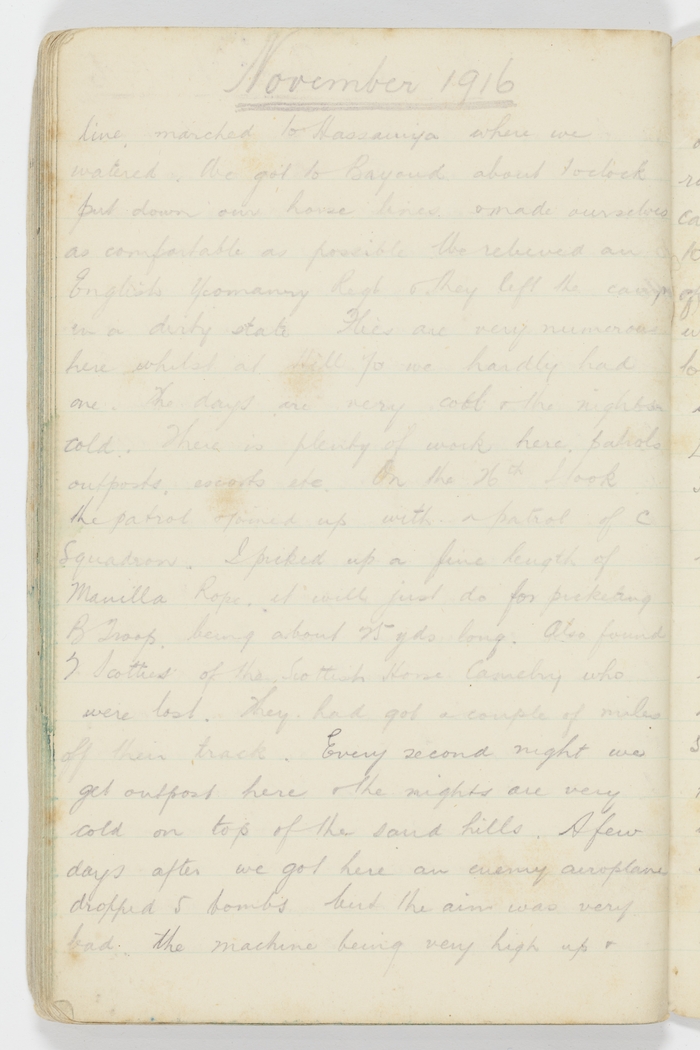 November 1916
line, marched to Hassaniya where we
watered. We got to Bayoud about oclock
put down our horse lines & made ourselves
as comfortable as possible We relieved an
English Yeomanry Regt & they left the camp
in a dirty state Flies are very numerous
here whilst at Hill 70 we hardly had
one. The days are very & the nights
cold. There is plenty of work here, patrols
outposts, escorts etc. On the 26th I took
the patrol joined up with a patrol of C
Squadron. I picked up a fine length of
Manilla Rope. it will just do for picketing
B Troop, being about 25 yds long. Also found
7 Scotties of the Scottish Horse Cavalry who
were lost. They had got a couple of miles
off their track. Every second night we
get outpost here & the nights are very
cold on top of the sand hills. A few
days after we got here an enemy aeroplane
dropped 5 bombs but the aim was very
bad. the machine being very high up &